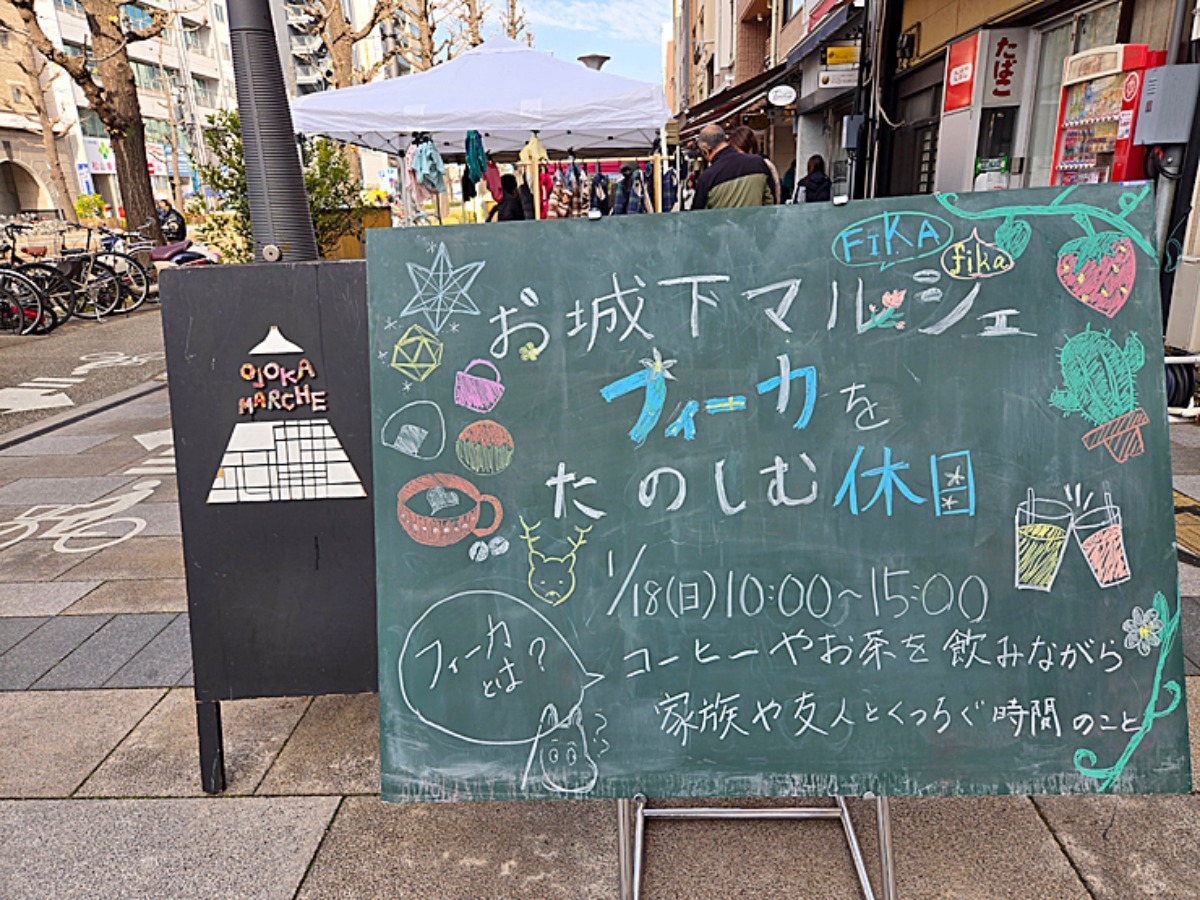 たばこ
たばこ
OJOKA
MARCHE
FIKA
fika
お城下マルシェ
フィーカを
たのしむ休日
1/18(日)10:00~15:00
フィーカ
とは?
コーヒーやお茶を飲みながら
家族や友人とくつろぐ時間のこと